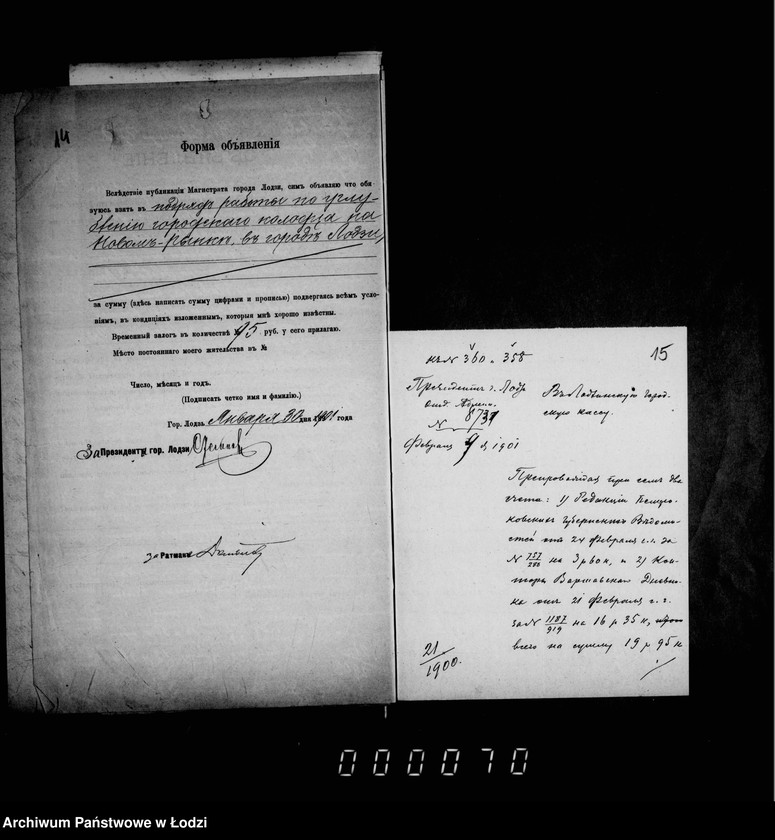 14
Форма объявленія
Вслѣдствіе публикаціи Магистрата города Лодзи, симъ объявляю что обя-
зуюсь взять въ подрядъ работы по углу-
бленію городскаго колодца на
Новомъ-Рынкѣ, въ городѣ Лодзи,
за сумму (здѣсь написать сумму цифрами и прописью) подвергаясь всѣмъ усло-
віямъ, въ кондиціяхъ изложеннымъ, которыя мнѣ хорошо извѣстны.
Временный залогъ въ количествѣ 15 руб. у сего прилагаю.
Мѣсто постояннаго моего жительства въ №
Число, мѣсяцъ и годъ.
(Подписать четко имя и фамилію.)
Гор. Лодзь Января 30 дня 1901 года
За Президентъ гор. Лодзи
за Ратманъ
15
къ № 360 и 358
Президентъ г. Лодзи
отд. Админ.
№ 8731
Февраля 9 д. 1901
Въ Лодзинскую Город-
скую кассу.
Препровождая при семъ два
счета: 1) Редакціи Петро-
ковскихъ Губернскихъ Вѣдомо-
стей отъ 24 Февраля с.г. за
№ 757/286 на 3 р 60 к, и 2) Кон-
торы Варшавскаго Дневни-
ка отъ 21 Февраля с.г.
за № 1187/919 на 16 р 35 к,
всего на сумму 19 р 95 к
21/1900.
000070
Archiwum Państwowe w Łodzi